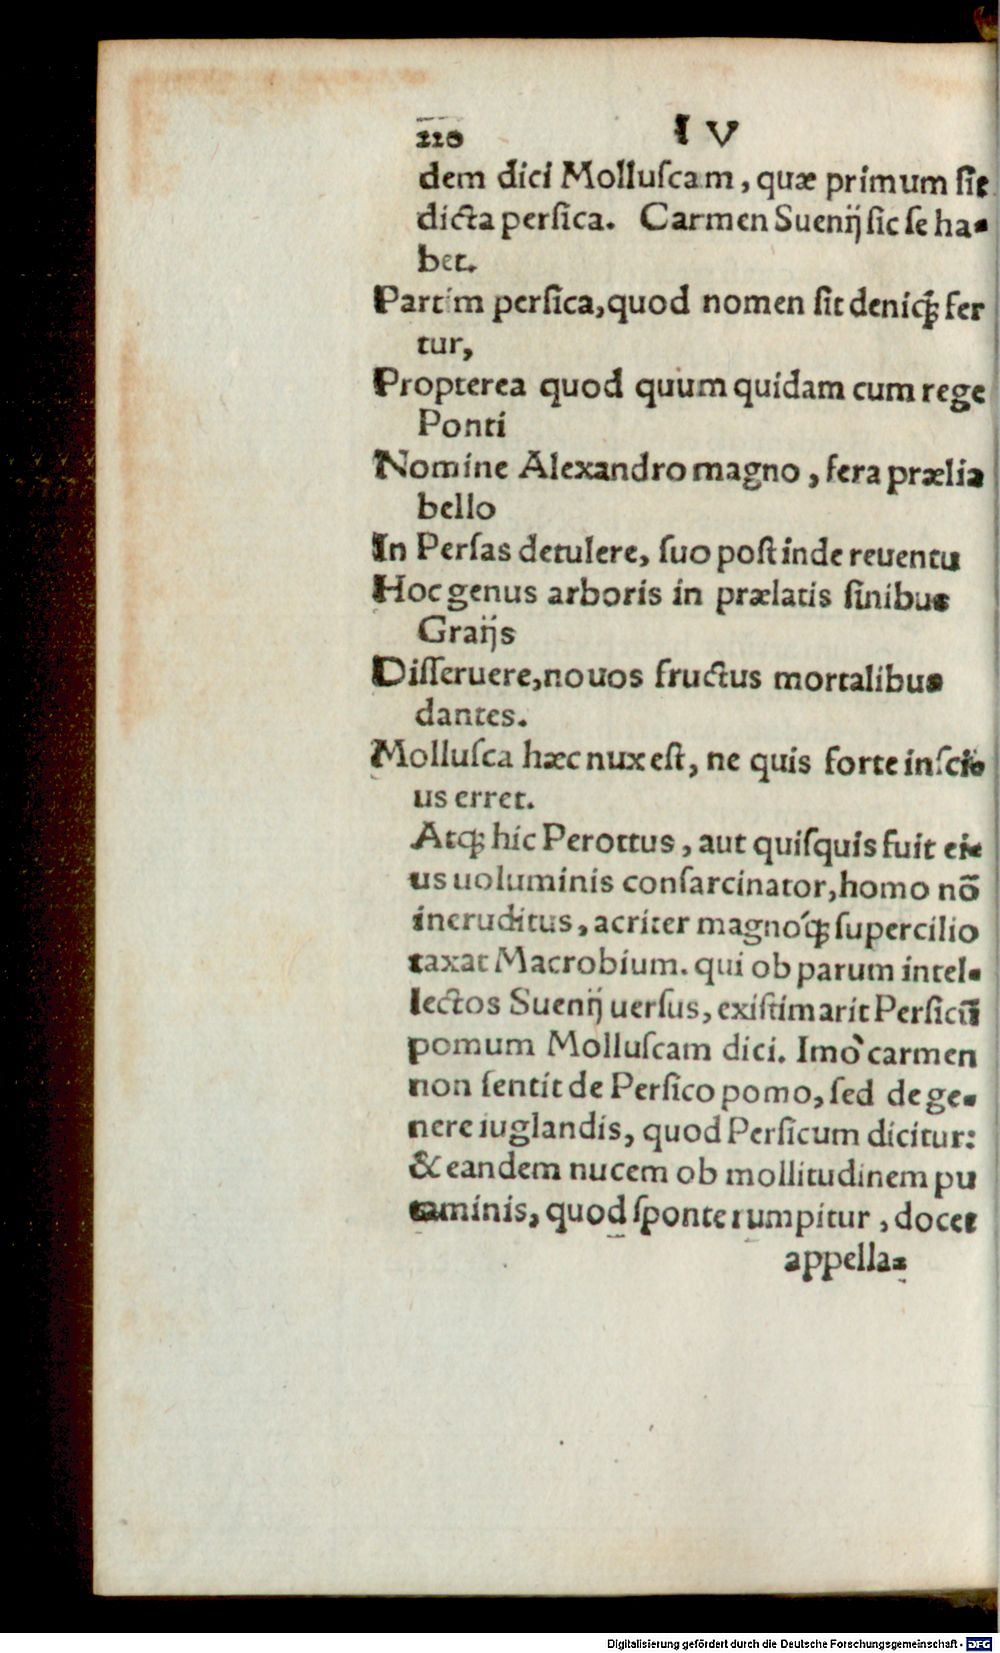 220 I V
dem dici Molluſcam, quæ primum ſit
dicta perſica. Carmen Suenij ſic ſe ha-
bet.
Partim perſica, quod nomen ſit deniq́ꝫ fer
tur,
Propterea quod quum quidam cum rege
Ponti
Nomine Alexandro magno, fera prælia
bello
In Perſas detulere, ſuo poſt inde reuentu
Hoc genus arboris in prælatis finibus
Graijs
Diſſeruere, nouos fructus mortalibus
dantes.
Molluſca hæc nux eſt, ne quis forte inſci-
us erret.
Atqꝫ hic Perottus, aut quiſquis fuit ei-
us uoluminis conſarcinator, homo nō
ineruditus, acriter magnoq́ꝫ ſupercilio
taxat Macrobium. qui ob parum intel-
lectos Suenij uerſus, exiſtimarit Perſicū
pomum Molluſcam dici. Imò carmen
non ſentit de Perſico pomo, ſed de ge-
nere iuglandis, quod Perſicum dicitur:
& eandem nucem ob mollitudinem pu
taminis, quod ſponte rumpitur, docet
appella-
Digitalisierung gefördert durch die Deutsche Forschungsgemeinschaft - DFG